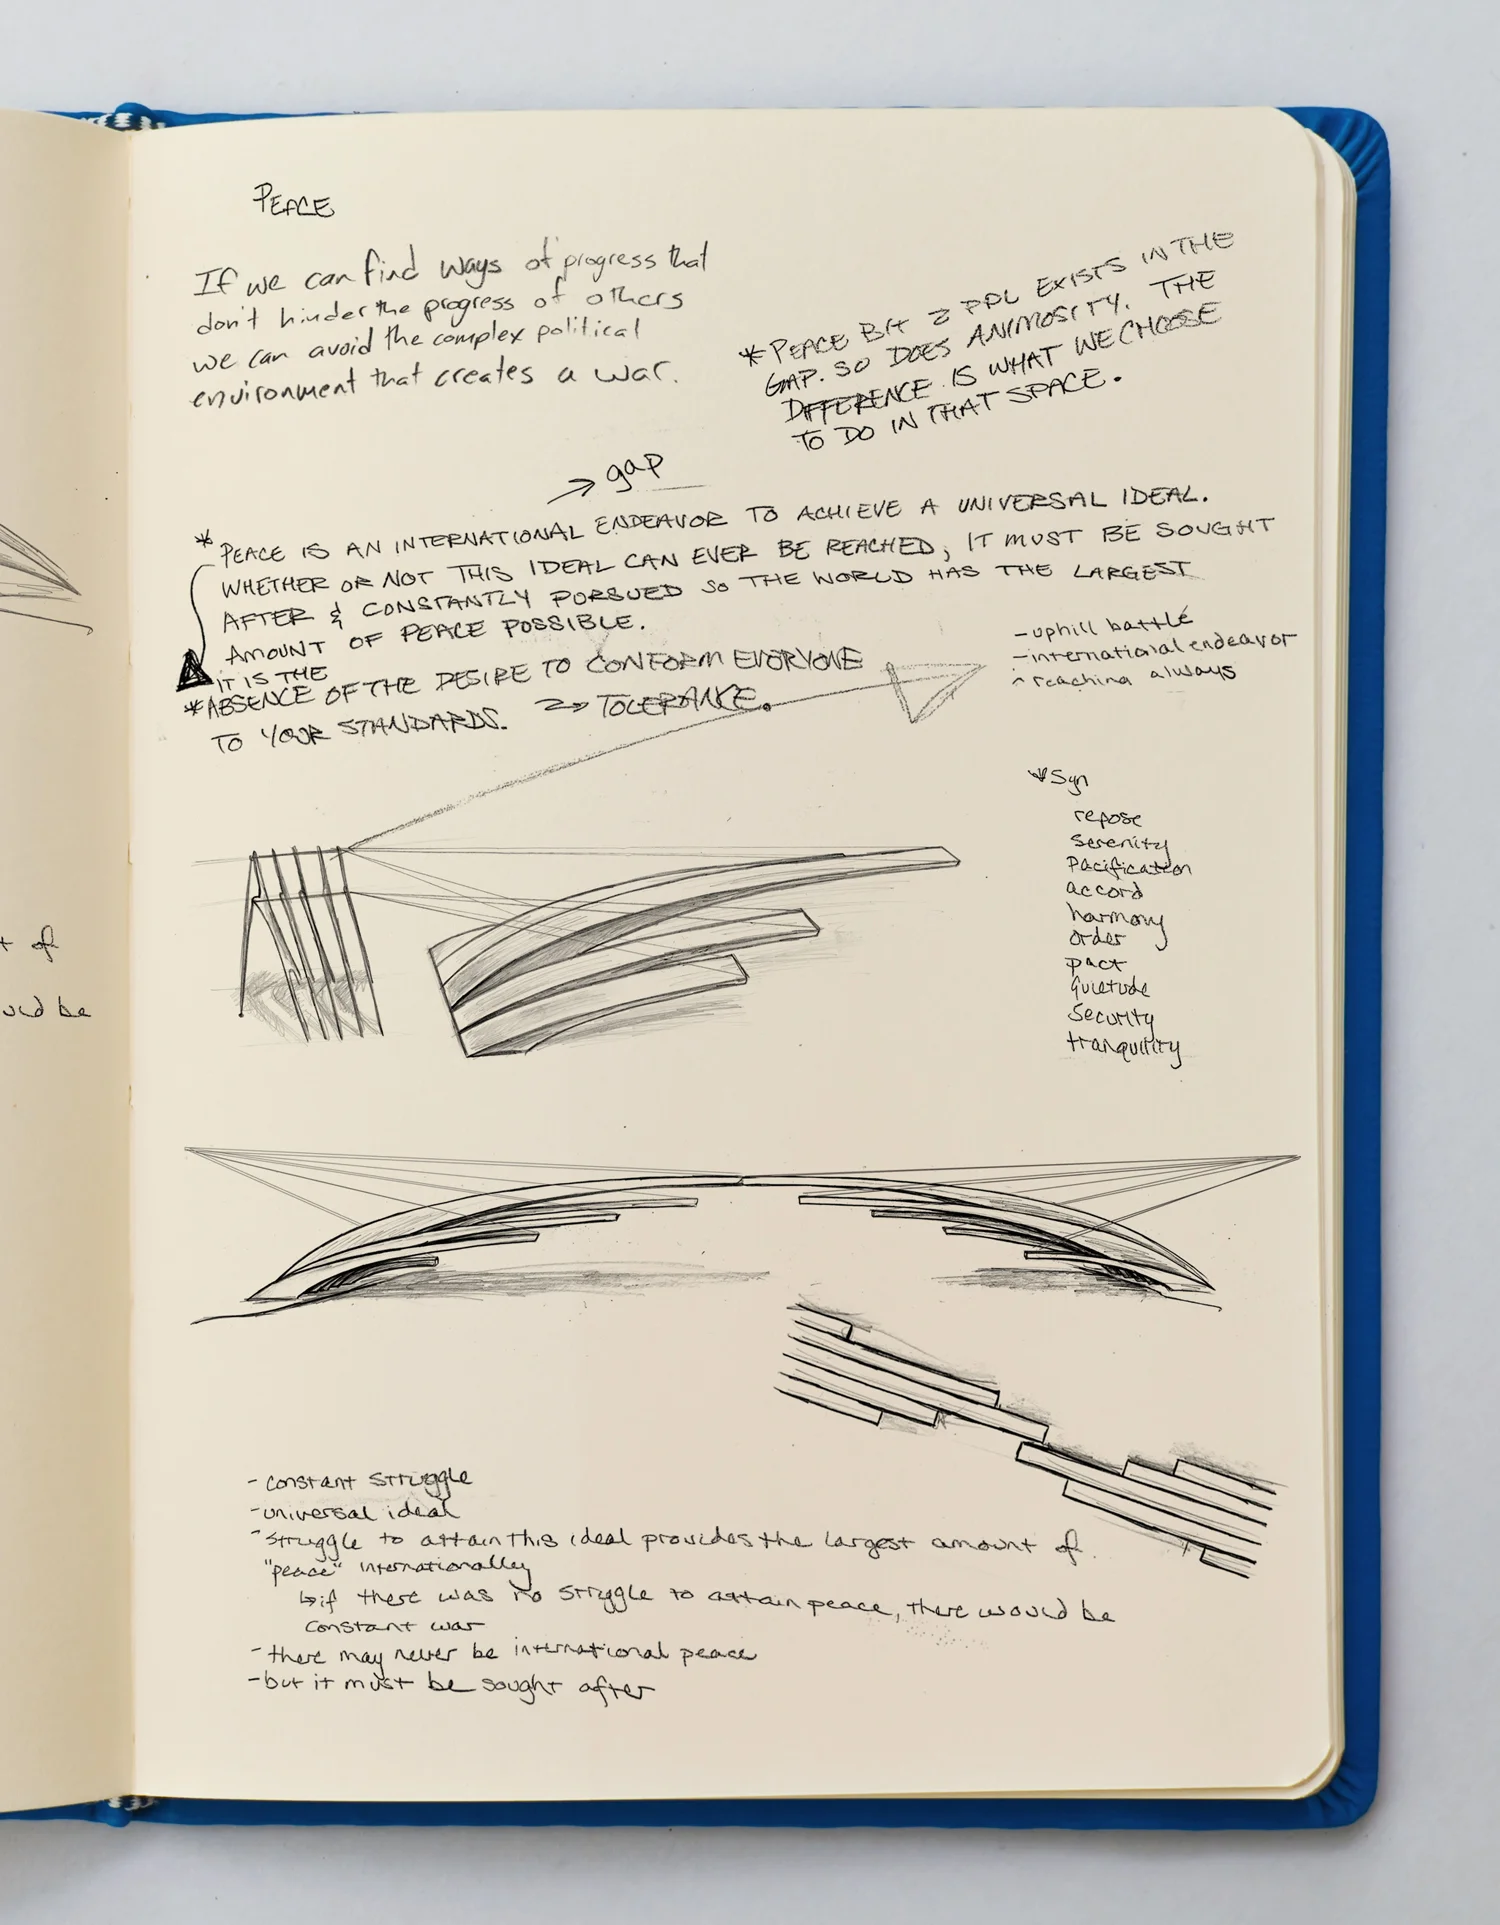 PEACE
If we can find ways of progress that
don't hinder the progress of others
we can avoid the complex political
environment that creates a war.
* PEACE BT 2 PPL EXISTS IN THE
GAP. SO DOES ANIMOSITY. THE
DIFFERENCE IS WHAT WE CHOOSE
TO DO IN THAT SPACE.
→ gap
* PEACE IS AN INTERNATIONAL ENDEAVOR TO ACHIEVE A UNIVERSAL IDEAL.
WHETHER OR NOT THIS IDEAL CAN EVER BE REACHED, IT MUST BE SOUGHT
AFTER & CONSTANTLY PORSUED SO THE WORLD HAS THE LARGEST
AMOUNT OF PEACE POSSIBLE.
IT IS THE
* ABSENCE OF THE DESIRE TO CONFORM EVERYONE
TO YOUR STANDARDS. → TOLERANCE.
- uphill battle
- international endeavor
- reaching always
* Syn
repose
serenity
Pacification
accord
harmony
order
pact
quietude
Security
tranquility
t of
ould be
- constant struggle
- universal ideal
- struggle to attain this ideal provides the largest amount of
"peace" internationally
↳ if there was no struggle to attain peace, there would be
constant war
- there may never be international peace
- but it must be sought after